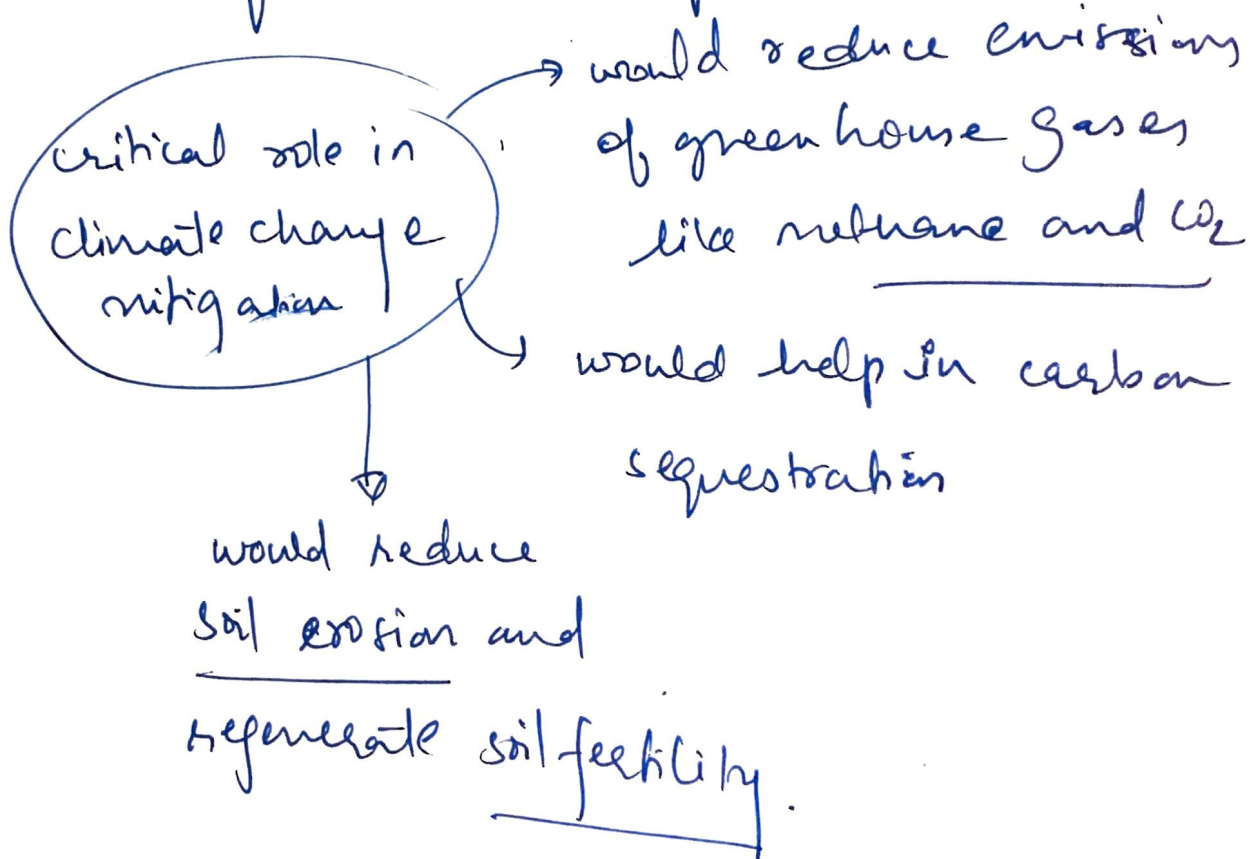 critical role in
climate change
mitigation
would reduce emissions
of greenhouse gases
like methane and CO₂
would help in carbon
sequestration
would reduce
soil erosion and
regenerate soil fertility.